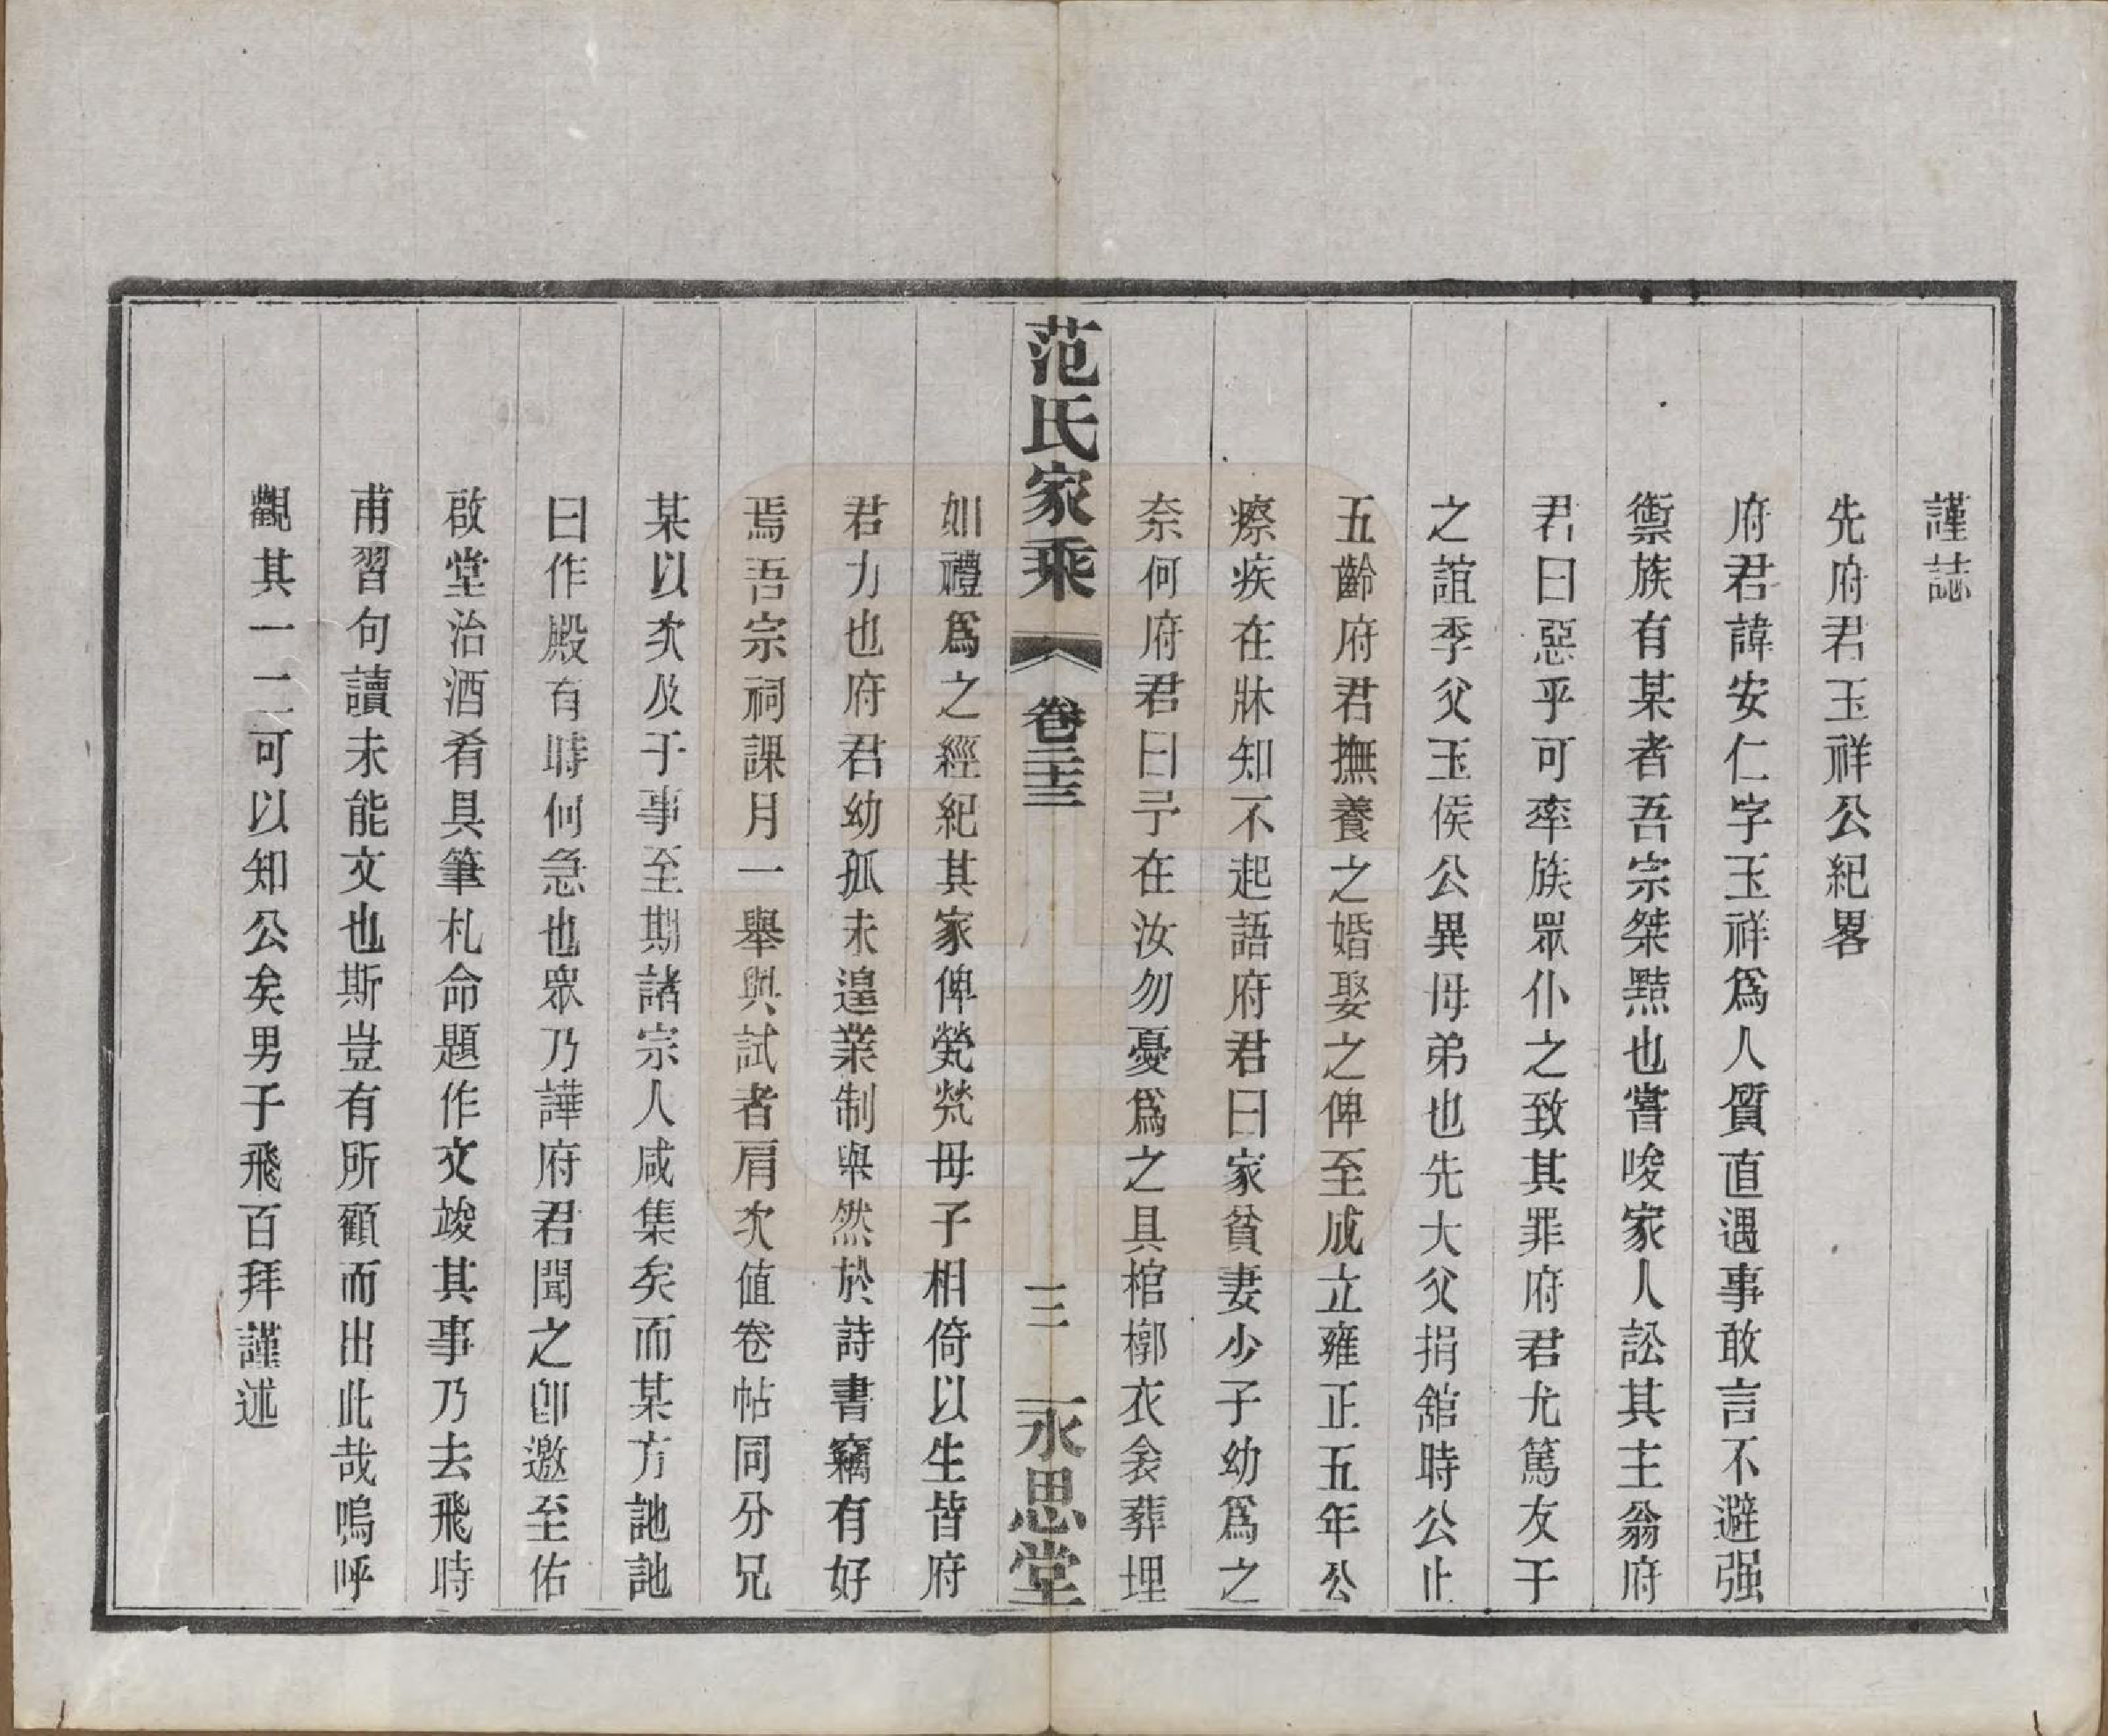 謹誌
先府君玉祥公紀畧
府君諱安仁字玉祥爲人質直遇事敢言不避强
禦族有某者吾宗桀黠也嘗唆家人訟其主翁府
君曰惡乎可率族眾仆之致其罪府君尤篤友于
之誼季父玉侯公異母弟也先大父捐舘時公止
五齡府君撫養之婚娶之俾至成立雍正五年公
瘵疾在牀知不起語府君曰家貧妻少子幼爲之
奈何府君曰予在汝勿憂爲之具棺槨衣衾葬埋
范氏家乘
卷二十三
三
永思堂
如禮爲之經紀其家俾煢煢母子相倚以生皆府
君力也府君幼孤未遑業制舉然於詩書竊有好
焉吾宗祠課月一舉與試者肩次值卷帖同分兄
某以次及于事至期諸宗人咸集矣而某方訑訑
曰作殿有時何急也眾乃譁府君聞之卽邀至佑
啟堂治酒肴具筆札命題作文竣其事乃去飛時
甫習句讀未能文也斯豈有所顧而出此哉嗚呼
觀其一二可以知公矣男子飛百拜謹述